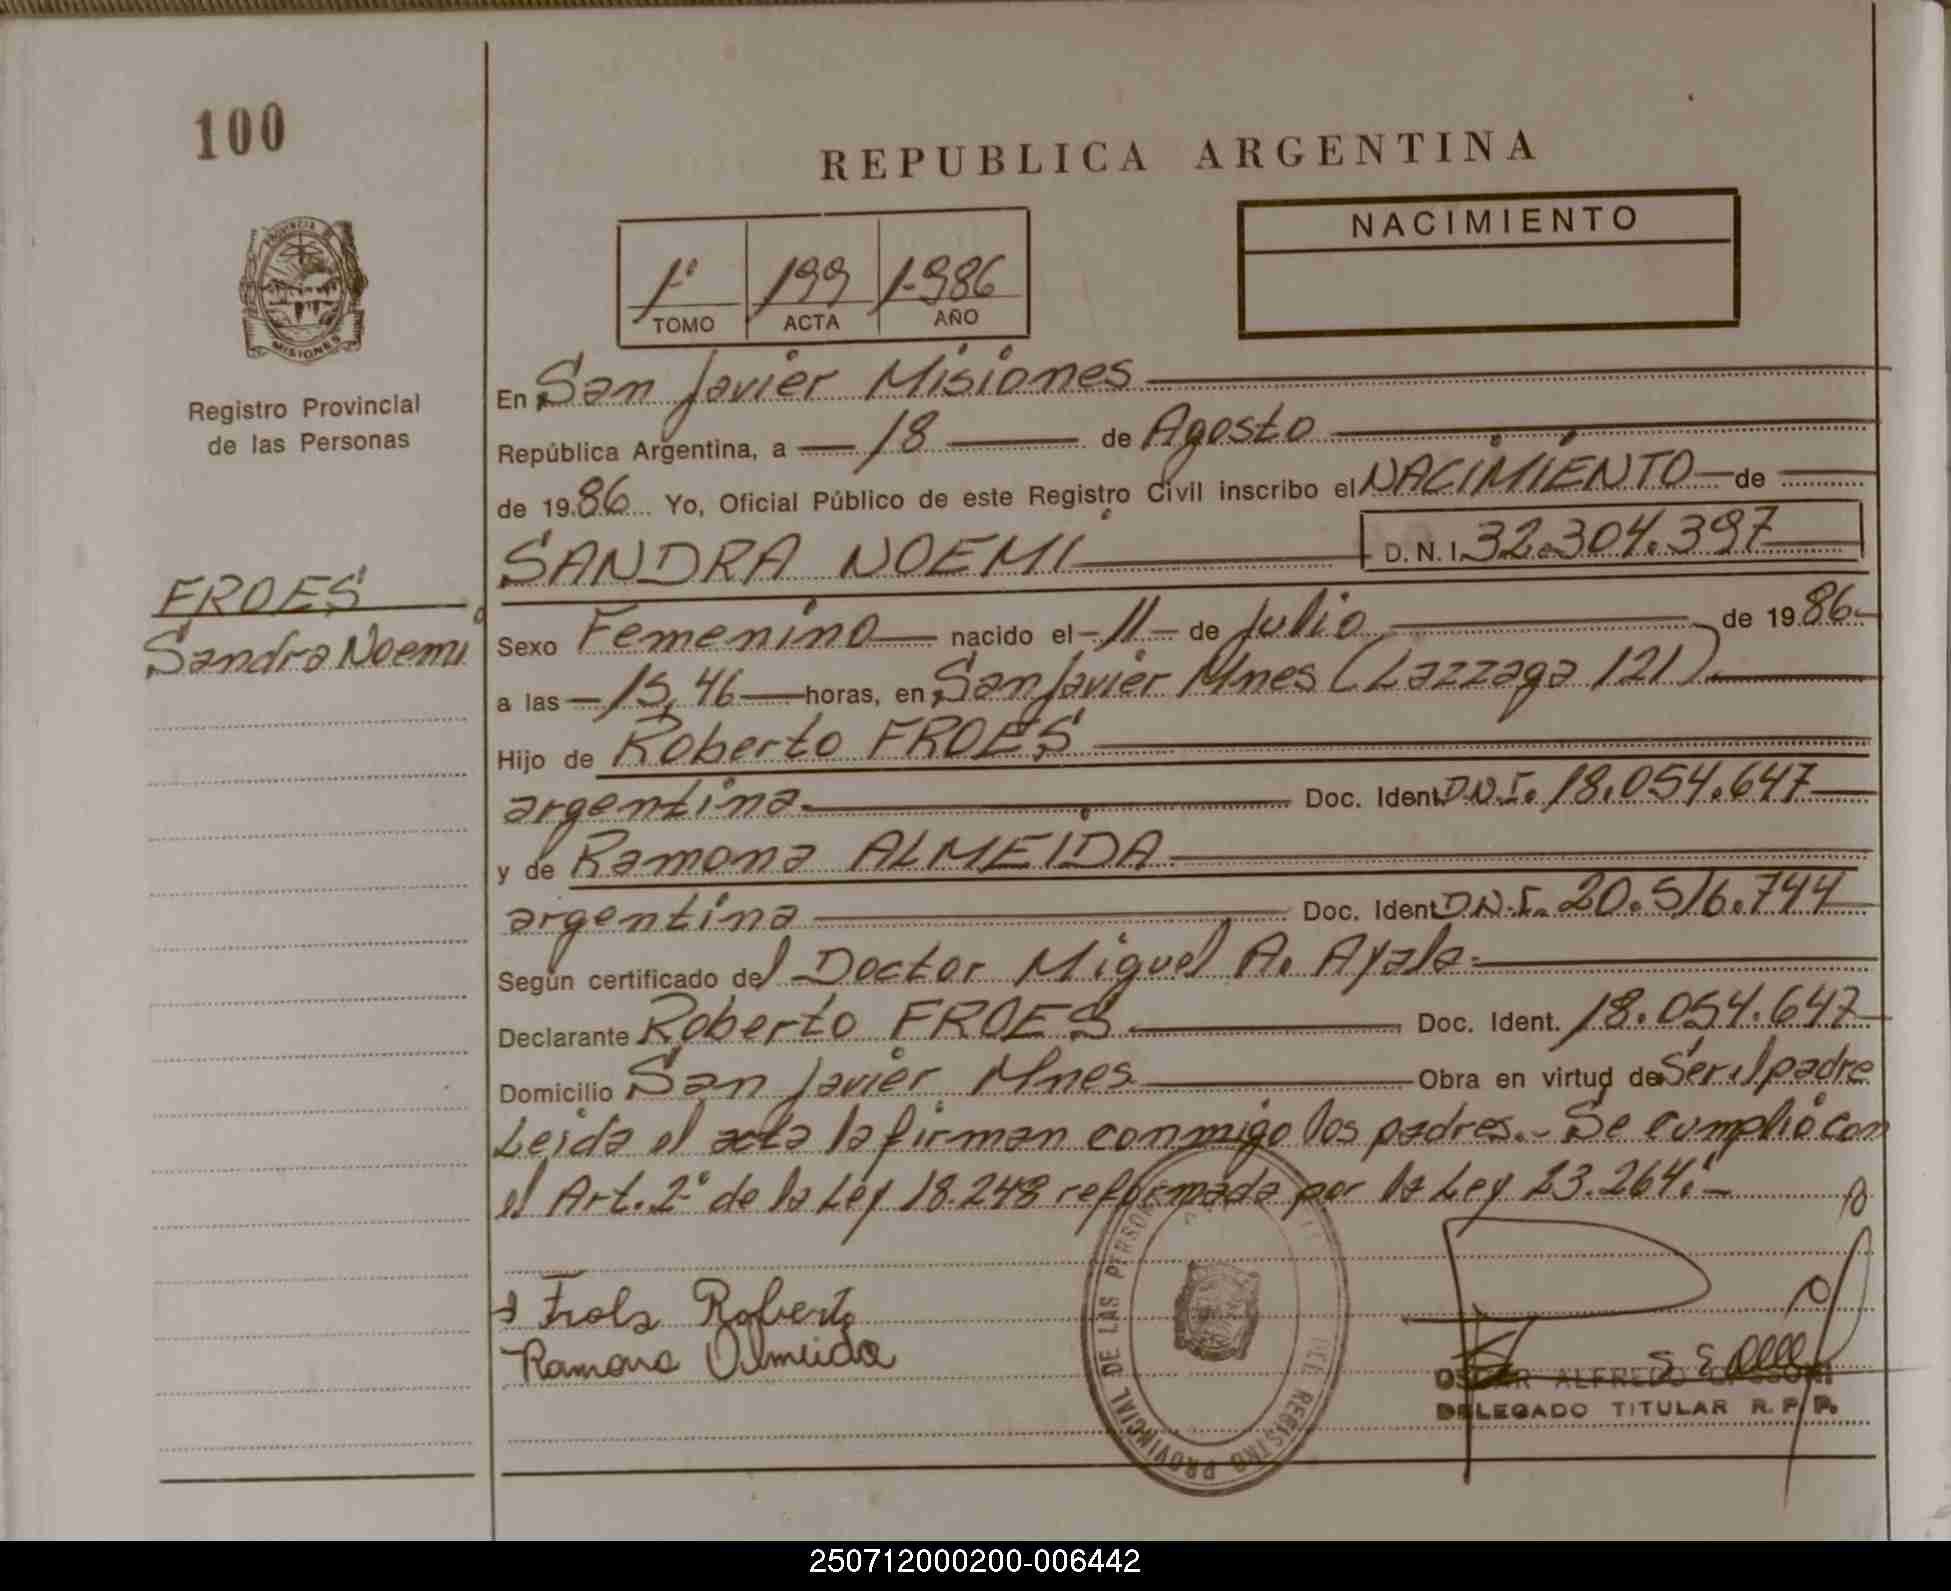 100
REPUBLICA ARGENTINA
NACIMIENTO
1º 199 1.986
TOMO ACTA AÑO
PROVINCIA DE
MISIONES
Registro Provincial
de las Personas
En San Javier Misiones
República Argentina, a 18 de Agosto
de 1986 Yo, Oficial Público de este Registro Civil inscribo el NACIMIENTO de
SANDRA NOEMI D.N.I. 32.304.397
FROES
Sandra Noemi
Sexo Femenino nacido el 11 de Julio de 1986
a las 15,46 horas, en San Javier Mnes (Lazzaga 121)
Hijo de Roberto FROES
argentina Doc. Ident D.N.I. 18.054.647
y de Ramona ALMEIDA
argentina Doc. Ident D.N.I. 20.516.744
Según certificado del Doctor Miguel A. Ayala
Declarante Roberto FROES Doc. Ident. 18.054.647
Domicilio San Javier Mnes Obra en virtud de Ser el padre
Leida el acta la firman conmigo los padres.- Se cumplió con
el Art. 2º de la Ley 18.248 reformada por la Ley 23.264.-
Roberto
Ramona Almeida
REGISTRO PROVINCIAL DE LAS PERSONAS
OSCAR ALFREDO
DELEGADO TITULAR R. P. P.
250712000200-006442